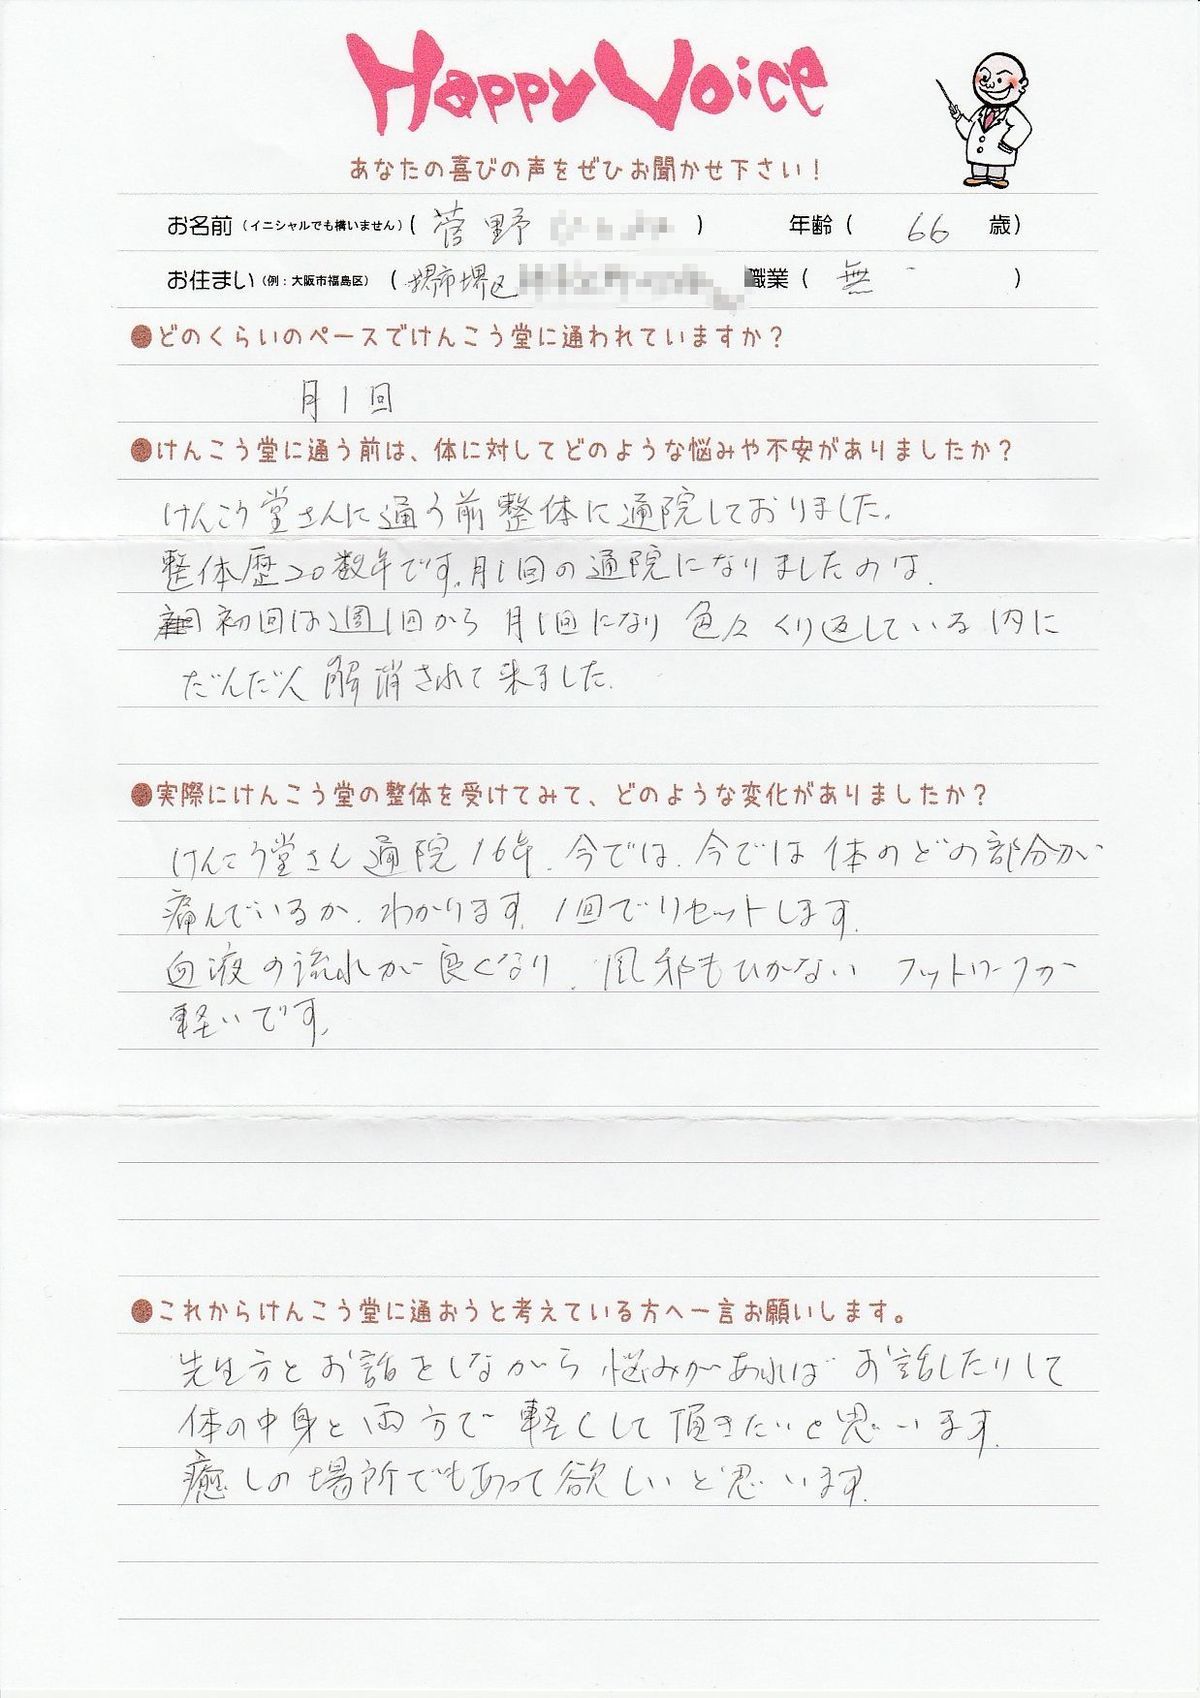 Happy Voice
あなたの喜びの声をぜひお聞かせ下さい！
お名前（イニシャルでも構いません）（ 菅野 ） 年齢（ 66 歳）
お住まい（例：大阪市福島区）（ 堺市堺区 職業（ 無 ）
●どのくらいのペースでけんこう堂に通われていますか？
月1回
●けんこう堂に通う前は、体に対してどのような悩みや不安がありましたか？
けんこう堂さんに通う前整体に通院しておりました。
整体歴20数年です。月1回の通院になりましたのは、
初回は週1回から 月1回になり 色々くり返している内に
だんだん解消されて来ました。
●実際にけんこう堂の整体を受けてみて、どのような変化がありましたか？
けんこう堂さん通院16年、今では、今では体のどの部分が
痛んでいるか、わかります。1回でリセットします。
血液の流れが良くなり、風邪もひかない フットワークが
軽いです。
●これからけんこう堂に通おうと考えている方へ一言お願いします。
先生方とお話をしながら悩みがあればお話したりして
体の中身と両方で軽くして頂きたいと思います。
癒しの場所でもあって欲しいと思います。